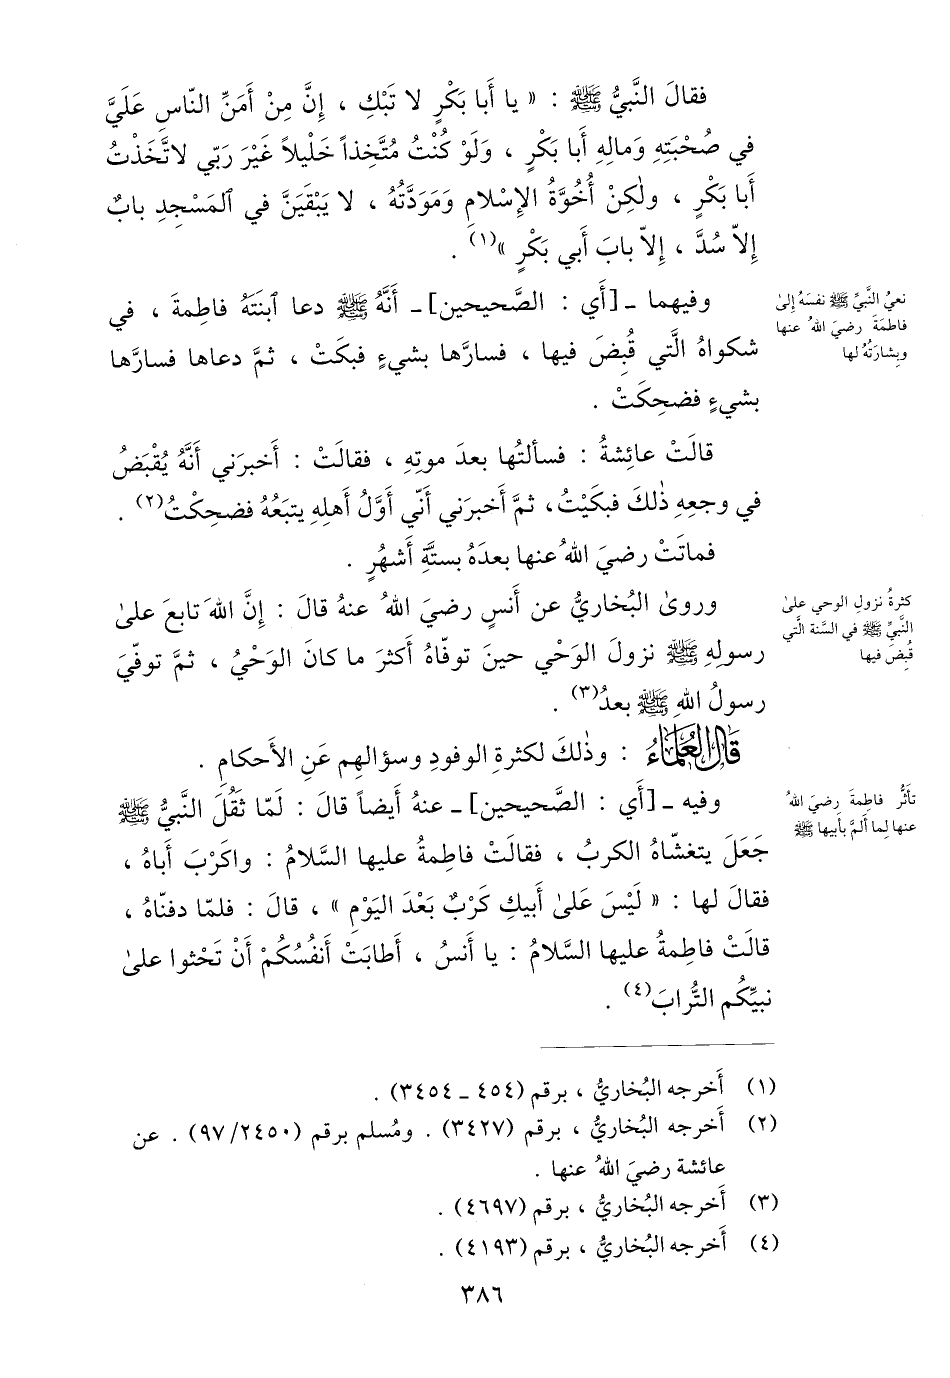 فقالَ النَّبيُّ ﷺ : « يا أَبا بَكْرٍ لا تَبْكِ ، إِنَّ مِنْ أَمَنِّ النّاسِ عَلَيَّ
في صُحْبَتِهِ وَمالِهِ أَبا بَكْرٍ ، وَلَوْ كُنْتُ مُتَّخِذاً خَلْيلاً غَيْرَ رَبّي لاتَّخَذْتُ
أَبا بَكْرٍ ، ولٰكِنْ أُخُوَّةُ الإِسْلامِ وَمَوَدَّتُهُ ، لا يَبْقَيَنَّ في ٱلمَسْجِدِ بابٌ
إِلاّ سُدَّ ، إِلاّ بابَ أَبي بَكْرٍ »(١) .
وفيهما ـ [أَي : الصَّحيحين] ـ أَنَّهُ ﷺ دعا ٱبنَتَهُ فاطِمةَ ، في
شكواهُ الَّتي قُبِضَ فيها ، فسارَّها بشيءٍ فبكَتْ ، ثمَّ دعاها فسارَّها
بشيءٍ فضحِكَتْ .
نعيُ النَّبيِّ ﷺ نفسَهُ إِلىٰ
فاطمَةَ رضيَ اللهُ عنها
وبِشارَتُهُ لها
قالَتْ عائِشةُ : فسألتُها بعدَ موتِهِ ، فقالَتْ : أَخبرَني أَنَّهُ يُقْبَضُ
في وجعِهِ ذٰلكَ فبكَيْتُ، ثمَّ أَخبرَني أَنّي أَوَّلُ أَهلِهِ يتبَعُهُ فضحِكْتُ(٢) .
فماتَتْ رضيَ اللهُ عنها بعدَهُ بستَّةِ أَشهُرٍ .
وروىٰ البُخاريُّ عن أَنسٍ رضيَ اللهُ عنهُ قالَ : إِنَّ اللهَ تابعَ علىٰ
رسولِهِ ﷺ نزولَ الوَحْي حينَ توفّاهُ أَكثرَ ما كانَ الوَحْيُ ، ثمَّ توفّيَ
رسولُ اللهِ ﷺ بعدُ(٣) .
كثرةُ نزولِ الوحي علىٰ
النَّبيِّ ﷺ في السَّنة الَّتي
قُبِضَ فيها
قَالَ العُلَمَاءُ : وذٰلكَ لكثرةِ الوفودِ وسؤالهِم عَنِ الأَحكامِ .
وفيه ـ [أَي : الصَّحيحين] ـ عنهُ أَيضاً قالَ : لَمّا ثَقُلَ النَّبيُّ ﷺ
جَعَلَ يتغشّاهُ الكربُ ، فقالَتْ فاطِمةُ عليها السَّلامُ : واكَرْبَ أَباهُ ،
فقالَ لها : « لَيْسَ عَلىٰ أَبيكِ كَرْبٌ بَعْدَ اليَوْمِ » ، قالَ : فلمّا دفنّاهُ ،
قالَتْ فاطِمةُ عليها السَّلامُ : يا أَنسُ ، أَطابَتْ أَنفُسُكُمْ أَنْ تَحْثوا علىٰ
نبيِّكُم التُّرابَ(٤) .
تأثُّر فاطِمةَ رضيَ اللهُ
عنها لِما أَلمَّ بأَبيها ﷺ
(١) أَخرجه البُخاريُّ ، برقم (٤٥٤ ـ ٣٤٥٤) .
(٢) أَخرجه البُخاريُّ ، برقم (٣٤٢٧) . ومُسلم برقم (٩٧/٢٤٥٠) . عن
عائشة رضيَ اللهُ عنها .
(٣) أَخرجه البُخاريُّ ، برقم (٤٦٩٧) .
(٤) أَخرجه البُخاريُّ ، برقم (٤١٩٣) .
٣٨٦